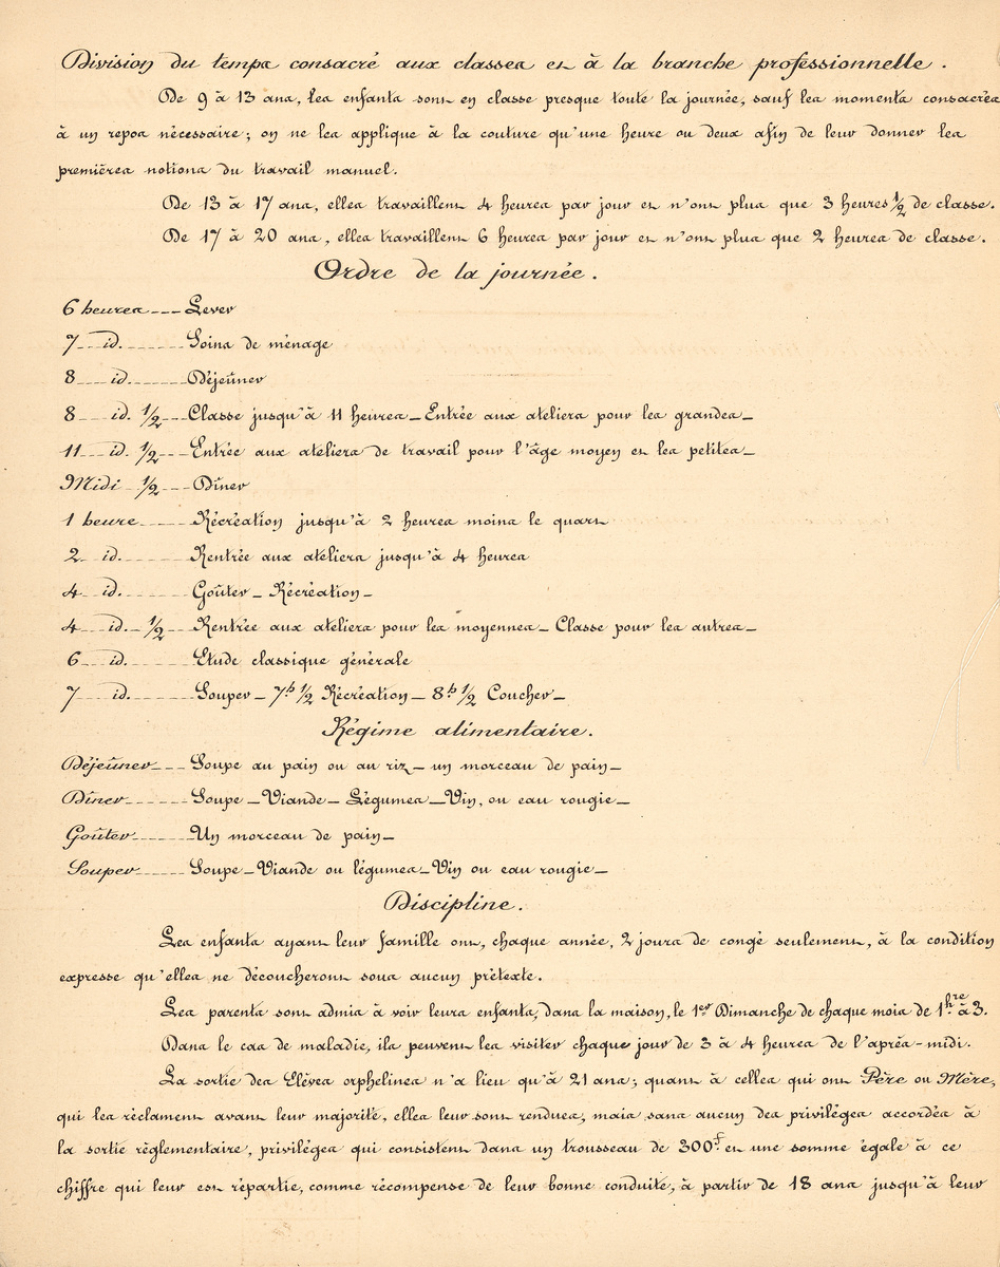 Division du temps consacré aux classes et à la branche professionnelle.
De 9 à 13 ans, les enfants sont en classe presque toute la journée, sauf les moments consacrés
à un repos nécessaire; on ne les applique à la couture qu'une heure ou deux afin de leur donner les
premières notions du travail manuel.
De 13 à 17 ans, elles travaillent 4 heures par jour et n'ont plus que 3 heures 1/2 de classe.
De 17 à 20 ans, elles travaillent 6 heures par jour et n'ont plus que 2 heures de classe.
Ordre de la journée.
6 heures --- Lever
7 -- id. ------ Soins de ménage
8 --- id. ------ Déjeûner
8 --- id. 1/2 --- Classe jusqu'à 11 heures _ Entrée aux ateliers pour les grandes _
11 --- id. 1/2 --- Entrée aux ateliers de travail pour l'âge moyen et les petites _
Midi 1/2 --- Dîner
1 heure ------ Récréation jusqu'à 2 heures moins le quart
2 -- id. ------ Rentrée aux ateliers jusqu'à 4 heures
4 -- id. ------ Goûter _ Récréation _
4 -- id. - 1/2 -- Rentrée aux ateliers pour les moyennes _ Classe pour les autres _
6 -- id. ------ Etude classique générale
7 --- id. ------ Souper _ 7h 1/2 Récréation _ 8h 1/2 Coucher _
Régime alimentaire.
Déjeûner --- Soupe au pain ou au riz _ un morceau de pain _
Dîner ------ Soupe _ Viande _ Légumes _ Vin, ou eau rougie _
Goûter ------ Un morceau de pain _
Souper ----- Soupe _ Viande ou légumes _ Vin ou eau rougie _
Discipline.
Les enfants ayant leur famille ont, chaque année, 2 jours de congé seulement, à la condition
expresse qu'elles ne découcheront sous aucun prétexte.
Les parents sont admis à voir leurs enfants, dans la maison, le 1er Dimanche de chaque mois de 1hre à 3.
Dans le cas de maladie, ils peuvent les visiter chaque jour de 3 à 4 heures de l'après-midi.
La sortie des Elèves orphelines n'a lieu qu'à 21 ans; quant à celles qui ont Père ou Mère,
qui les réclament avant leur majorité, elles leur sont rendues, mais sans aucun des privilèges accordés à
la sortie règlementaire, privilèges qui consistent dans un trousseau de 300f. et une somme égale à ce
chiffre qui leur est répartie, comme récompense de leur bonne conduite, à partir de 18 ans jusqu'à leur